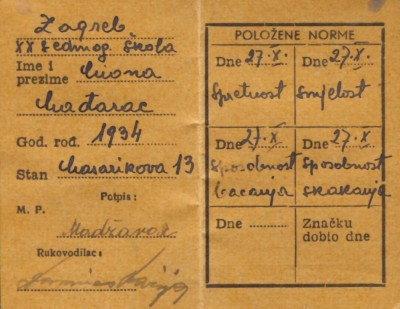 Zagreb
XX sedmog. škola
Ime i
prezime Miona
Mađarac
God. rođ. 1934
Stan Masarikova 13
Potpis:
M. P.
Madžarac
Rukovodilac:
POLOŽENE NORME
Dne 27.X.
Spretnost
Dne 27.X.
Smjelost
Dne 27.X.
Sposobnost
bacanja
Dne 27.X.
Sposobnost
skakanja
Dne
Značku
dobio dne